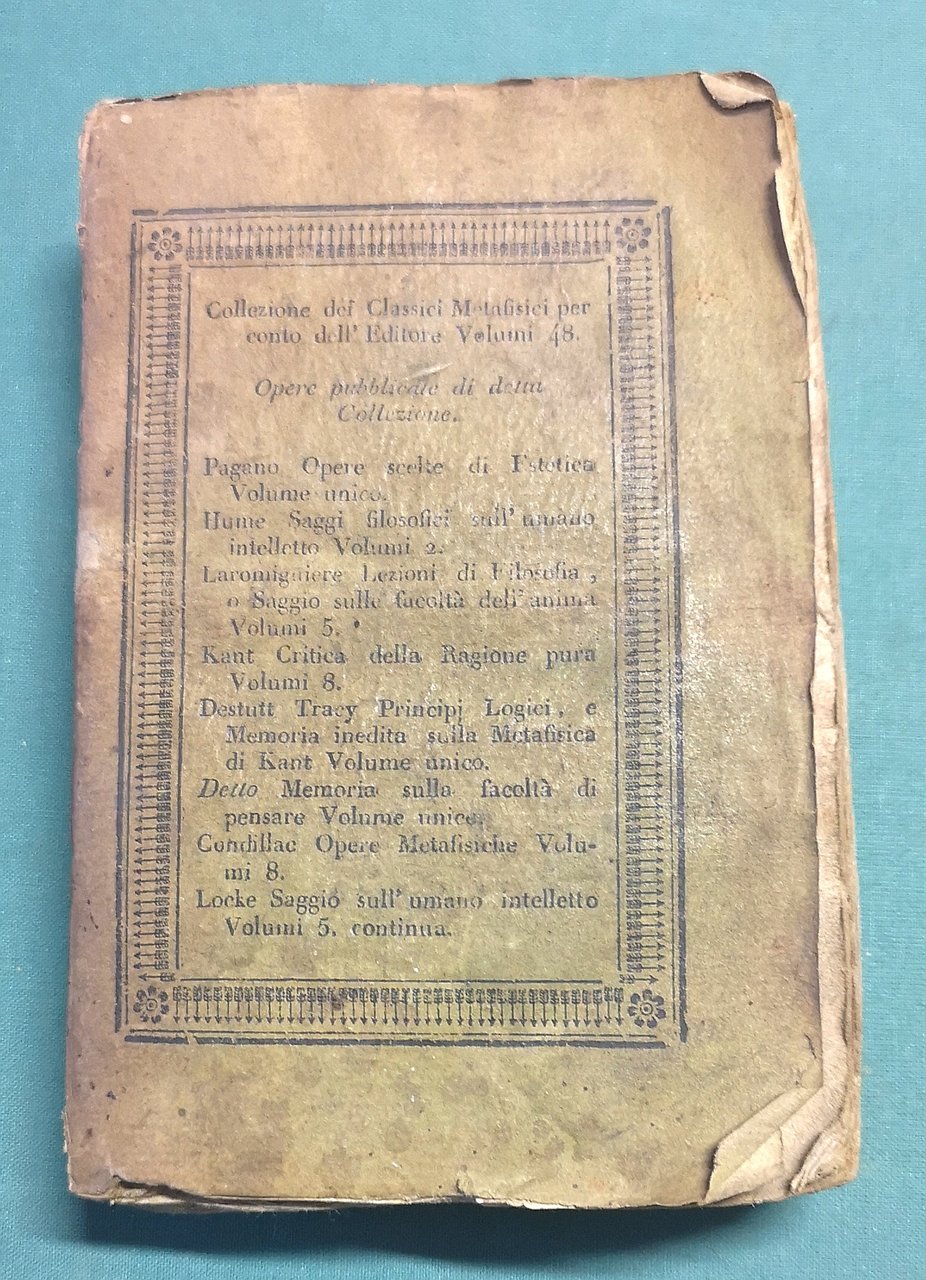 Collezione dei Classici Metafisici per
conto dell' Editore Volumi 48.
Opere pubblicate di detta
Collezione.
Pagano Opere scelte di Estetica
Volume unico.
Hume Saggi filosofici sull' umano
intelletto Volumi 2.
Laromiguiere Lezioni di Filosofia,
o Saggio sulle facoltà dell' anima
Volumi 5.
Kant Critica della Ragione pura
Volumi 8.
Destutt Tracy Principj Logici, e
Memoria inedita sulla Metafisica
di Kant Volume unico.
Detto Memoria sulla facoltà di
pensare Volume unico.
Condillac Opere Metafisiche Volu-
mi 8.
Locke Saggio sull' umano intelletto
Volumi 5. continua.